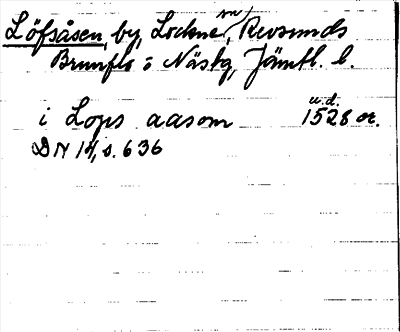 Löfsåsen, by, Lockne sn, Revsunds
Brunflo o Näskn, Jämtl. l.
u.d.
i Lops aasom 1528 or.
DN 14, s. 636